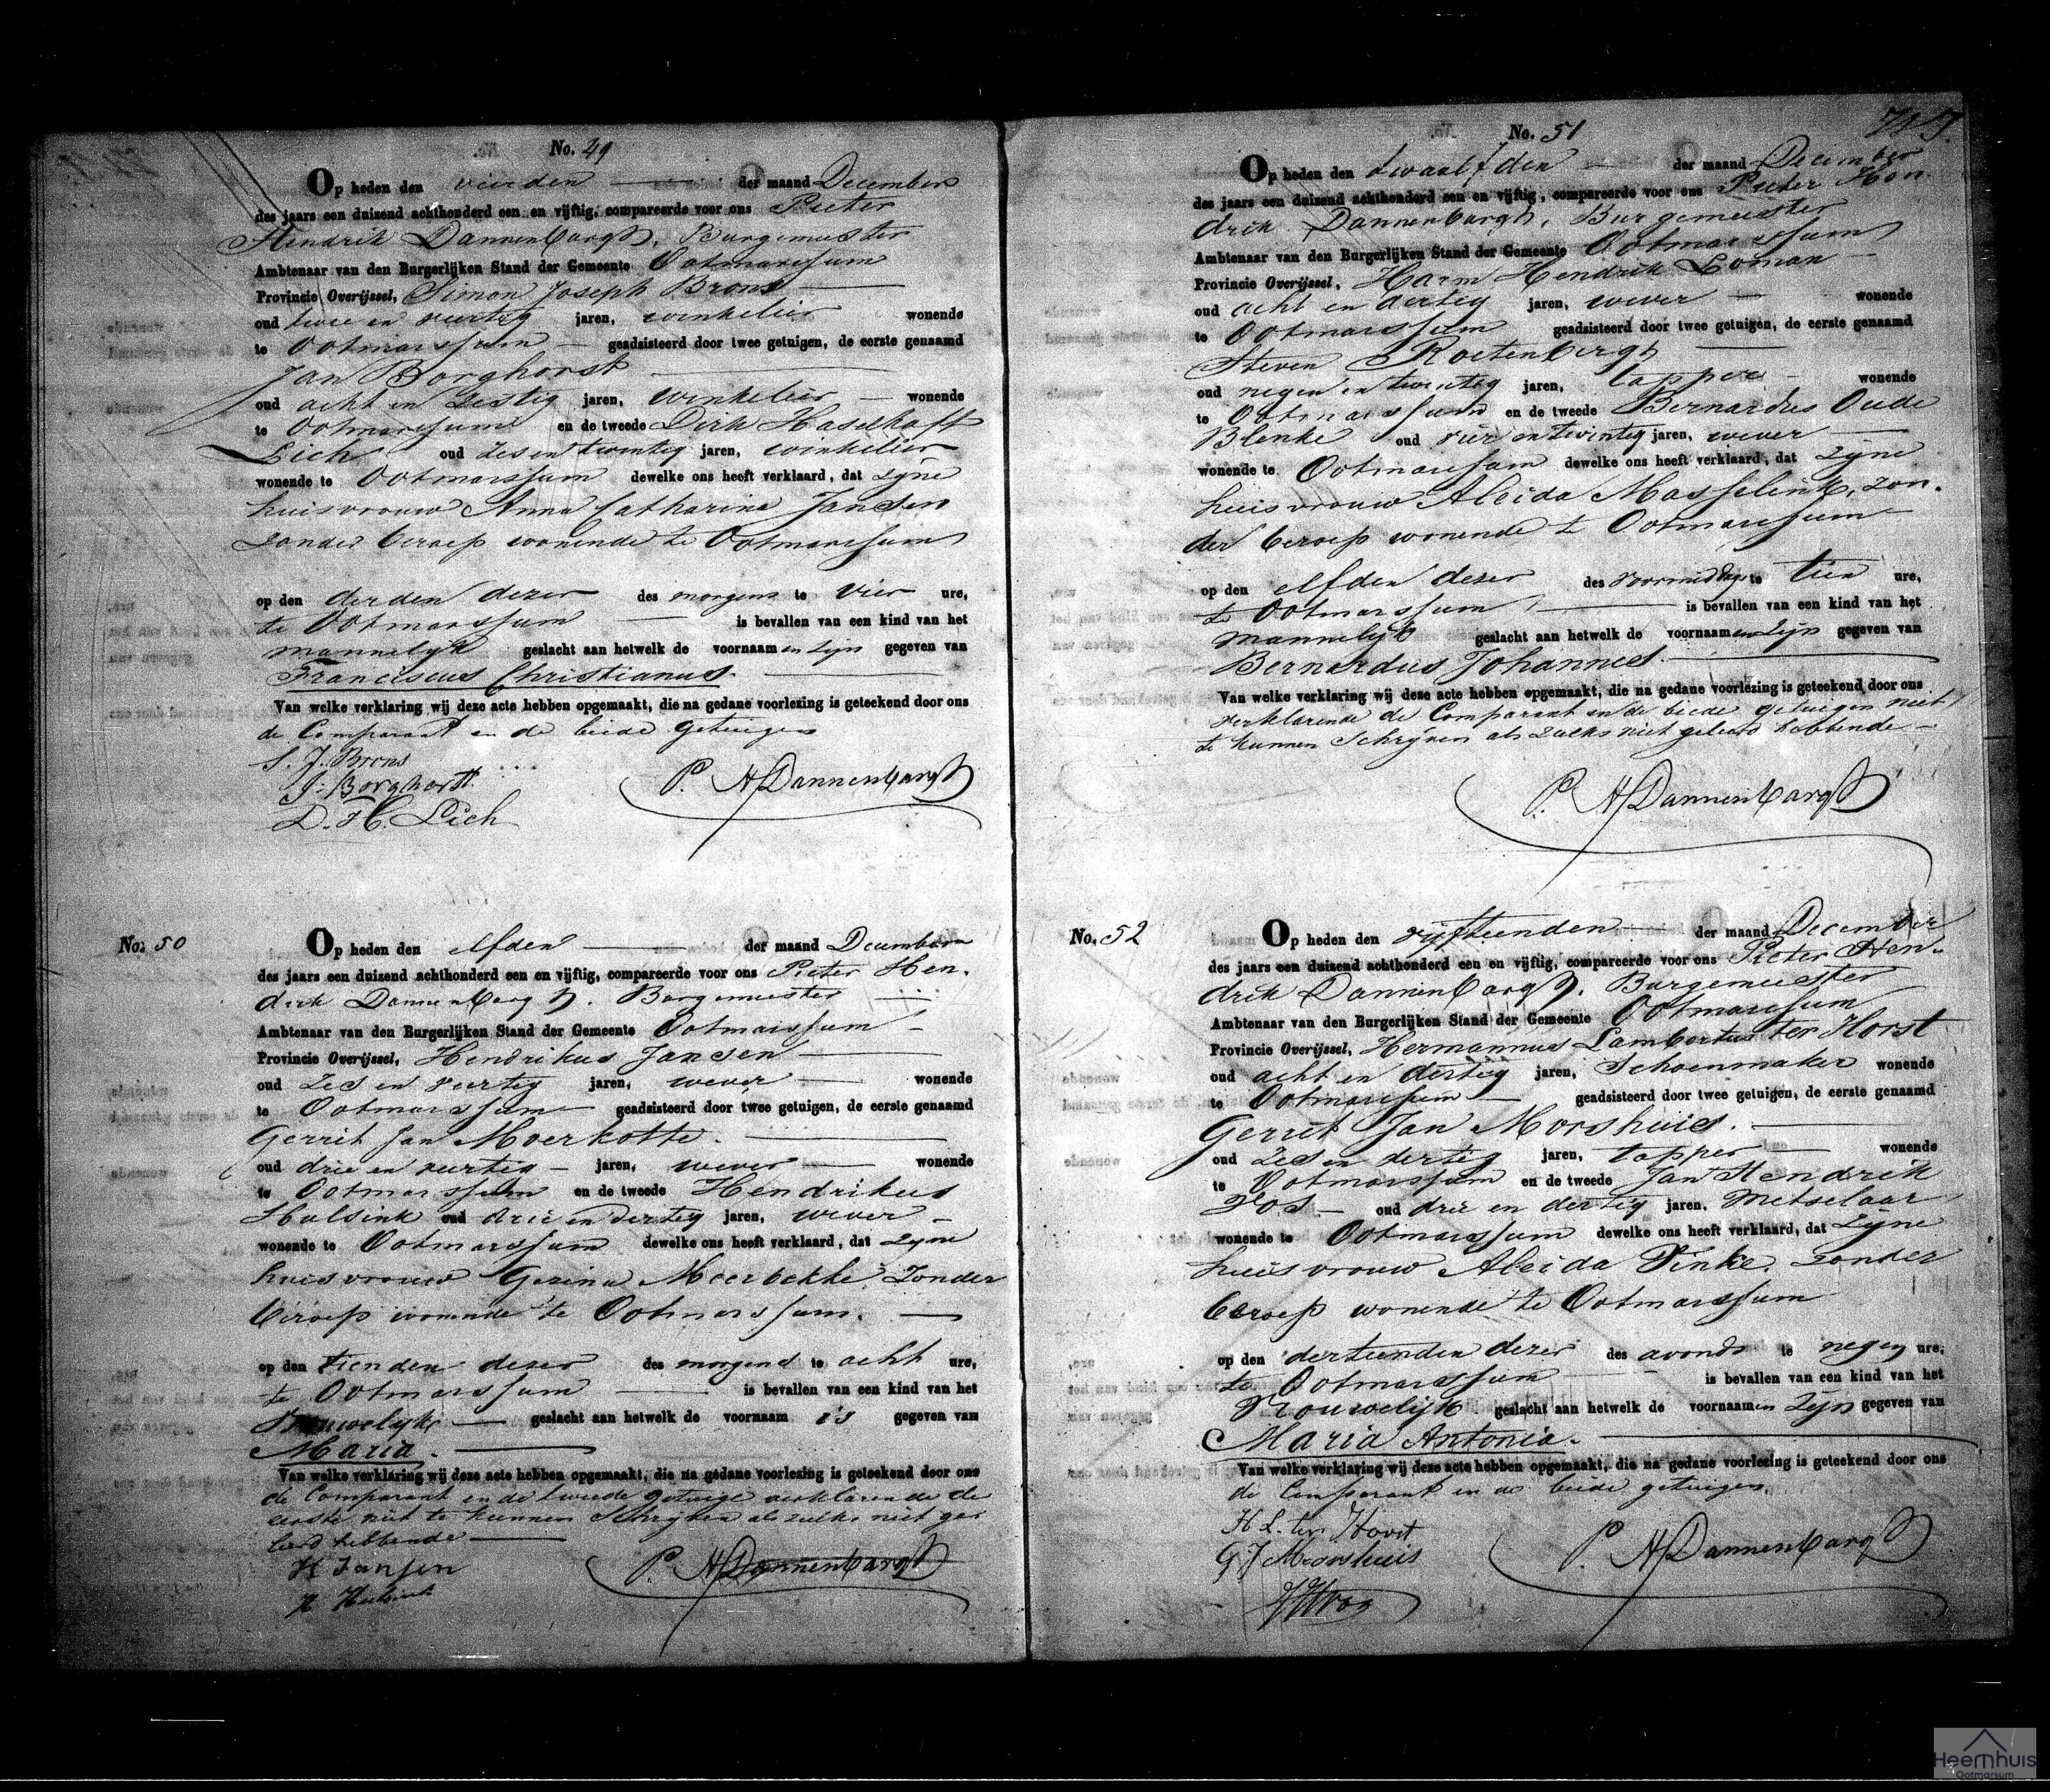 No. 49
Op heden den vierden der maand December
des jaars een duizend achthonderd een en vijftig, compareerde voor ons Pieter
Hendrik Dannenbargh, Burgemeester
Ambtenaar van den Burgerlijken Stand der Gemeente Ootmarssum
Provincie Overijssel, Simon Joseph Brons
oud twee en veertig jaren, winkelier wonende
te Ootmarssum geadsisteerd door twee getuigen, de eerste genaamd
Jan Borghorst
oud acht en zestig jaren, winkelier wonende
te Ootmarssum en de tweede Dirk Haselhoff
Lich oud zesentwintig jaren, winkelier
wonende te Ootmarssum dewelke ons heeft verklaard, dat zijne
huisvrouw Anna Catharina Jansen
zonder beroep wonende te Ootmarssum
op den derden dezer des morgens te vier ure,
te Ootmarssum is bevallen van een kind van het
mannelijk geslacht aan hetwelk de voornaamen zijn gegeven van
Franciscus Christianus.
Van welke verklaring wij deze acte hebben opgemaakt, die na gedane voorlezing is geteekend door ons
de Comparant en de beide getuigen
S. J. Brons
J. Borghorst
P. H Dannenbargh
D. H. Lich
No. 50
Op heden den elfden der maand December
des jaars een duizend achthonderd een en vijftig, compareerde voor ons Pieter Hen-
drik Dannenbargh. Burgemeester
Ambtenaar van den Burgerlijken Stand der Gemeente Ootmarssum
Provincie Overijssel, Hendrikus Jansen
oud zes en veertig jaren, wever wonende
te Ootmarssum geadsisteerd door twee getuigen, de eerste genaamd
Gerrit Jan Moerkotte.
oud drie en veertig jaren, wever wonende
te Ootmarssum en de tweede Hendrikus
Hulsink oud drie en dertig jaren, wever
wonende te Ootmarssum dewelke ons heeft verklaard, dat zijne
huisvrouw Gezina zonder
beroep wonende te Ootmarssum.
op den tienden dezer des morgens te acht ure,
te Ootmarssum is bevallen van een kind van het
Vrouwelijk geslacht aan hetwelk de voornaam is gegeven van
Maria.
Van welke verklaring wij deze acte hebben opgemaakt, die na gedane voorlezing is geteekend door ons
de Comparant en de tweede getuige verklarende de
eerste niet te kunnen Schrijven als zulks niet ge-
leerd hebbende
H Jansen
P. H Dannenbargh
H Hulsink
No. 51
Op heden den twaalfden der maand December
des jaars een duizend achthonderd een en vijftig, compareerde voor ons Pieter Hen-
drik Dannenbargh, Burgemeester
Ambtenaar van den Burgerlijken Stand der Gemeente Ootmarssum
Provincie Overijssel, Harm Hendrik Loman
oud acht en dertig jaren, wever wonende
te Ootmarssum geadsisteerd door twee getuigen, de eerste genaamd
Steven Roetenbergh
oud negen en twintig jaren, tapper wonende
te Ootmarssum en de tweede Bernardus Oude
Blenke oud vier en twintig jaren, wever
wonende te Ootmarssum dewelke ons heeft verklaard, dat zijne
huisvrouw Aleida Masselink, zon-
der beroep wonende te Ootmarssum
op den elfden dezer des voormiddags te tien ure,
te Ootmarssum is bevallen van een kind van het
mannelijk geslacht aan hetwelk de voornaamen zijn gegeven van
Bernardus Johannes.
Van welke verklaring wij deze acte hebben opgemaakt, die na gedane voorlezing is geteekend door ons
verklarende de Comparant en de beide getuigen niet
te kunnen Schrijven als zulks niet geleerd hebbende
P. H Dannenbargh
No. 52
Op heden den vijftienden der maand December
des jaars een duizend achthonderd een en vijftig, compareerde voor ons Pieter Hen-
drik Dannenbargh. Burgemeester
Ambtenaar van den Burgerlijken Stand der Gemeente Ootmarssum
Provincie Overijssel, Hermannus Lambertus ter Horst
oud acht en dertig jaren, Schoenmaker wonende
te Ootmarssum geadsisteerd door twee getuigen, de eerste genaamd
Gerrit Jan Morshuis.
oud zes en dertig jaren, tapper wonende
te Ootmarssum en de tweede Jan Hendrik
Vos oud drie en dertig jaren, Metselaar
wonende te Ootmarssum dewelke ons heeft verklaard, dat zijne
huisvrouw Aleida Vinke, zonder
beroep wonende te Ootmarssum
op den dertienden dezer des avonds te negen ure,
te Ootmarssum is bevallen van een kind van het
Vrouwelijk geslacht aan hetwelk de voornaamen zijn gegeven van
Maria Antonia.
Van welke verklaring wij deze acte hebben opgemaakt, die na gedane voorlezing is geteekend door ons
de Comparant en de beide getuigen.
H L. ter Horst
G J Morshuis
P. H Dannenbargh
JHVos
Heemhuis
Ootmarsum